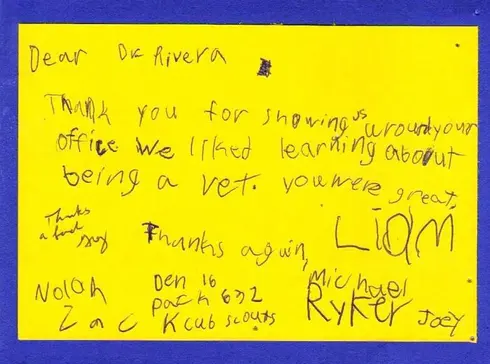 Dear Dr Rivera
Thank you for showing us uround your
office We liked learning about
being a vet. you were great.
Thanks
a
Thanks again,
Liam
Michael
Nolan
Den 16
pack 632
Ryker
Joey
Zac K cub scouts